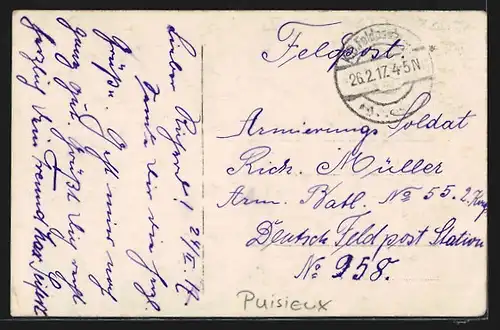 24/II 17.
Lieber Richard!
Danke dir die Fugl.
Grüße. Geht mir noch
ganz gut. Grüßt dich recht
herzlich Dein Freund
Feldpost.
26.2.17. 4-5N
Armierungs Soldat
Rich. Müller
Arm. Batl. No 55. 2. Komp
Deutsche Feldpost Station
No 958.
Puisieux